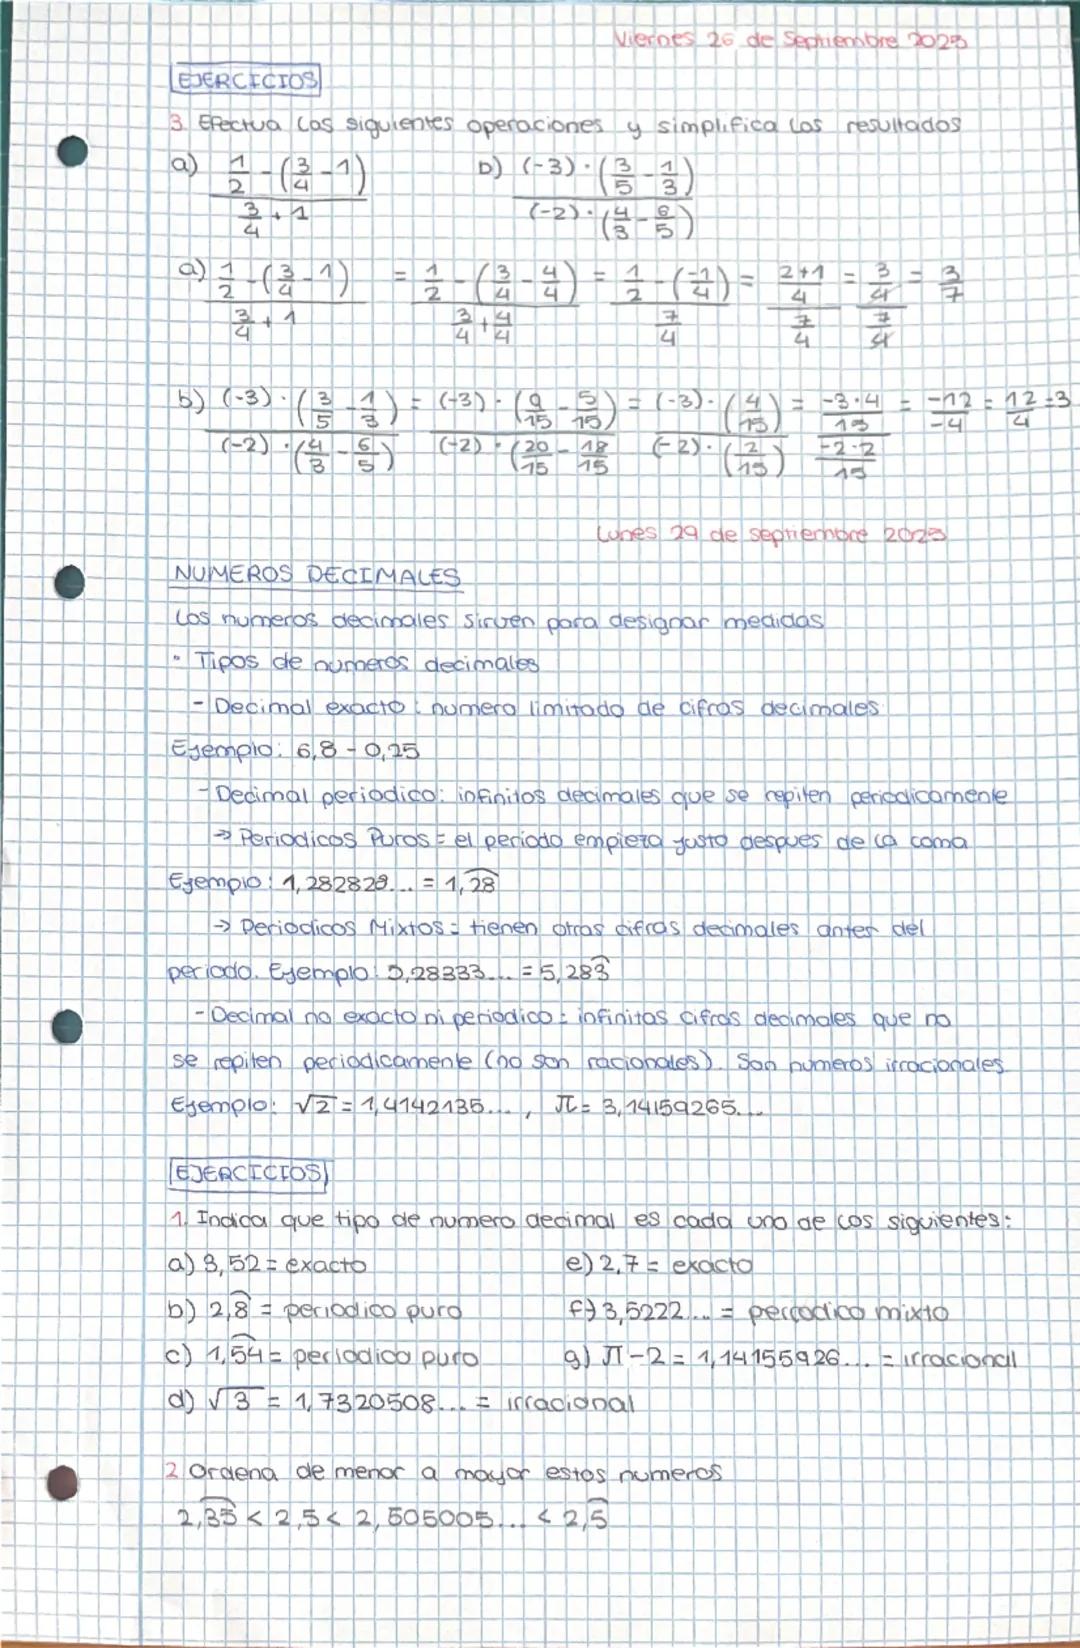 Viernes 26 de Septiembre 2025
EJERCICIOS
3. Efectua los siguientes operaciones y simplifica los resultados
a) (1/2 - (3/4 - 1)) / (3/4 + 1)   b) ((-3) · (3/5 - 1/3)) / ((-2) · (4/3 - 6/5))
a) (1/2 - (3/4 - 1)) / (3/4 + 1) = (1/2 - (3/4 - 4/4)) / (3/4 + 4/4) = (1/2 - (-1/4)) / (7/4) = ((2+1)/4) / (7/4) = (3/4) / (7/4) = 3/7
b) ((-3) · (3/5 - 1/3)) / ((-2) · (4/3 - 6/5)) = ((-3) · (9/15 - 5/15)) / ((-2) · (20/15 - 18/15)) = ((-3) · (4/15)) / ((-2) · (2/15)) = (-3·4/15) / (-2·2/15) = -12/-4 = 12/4 = 3
Lunes 29 de septiembre 2025
NUMEROS DECIMALES
Los numeros decimales sirven para designar medidas
· Tipos de numeros decimales
- Decimal exacto: numero limitado de cifras decimales
Ejemplo: 6,8 - 0,25
- Decimal periodico: infinitos decimales que se repiten periodicamente
→ Periodicos Puros = el periodo empieza justo despues de la coma
Ejemplo: 1,282828... = 1,2͡8
→ Periodicos Mixtos = tienen otras cifras decimales antes del
periodo. Ejemplo: 5,28333... = 5,283̑
- Decimal no exacto ni periodico = infinitas cifras decimales que no
se repiten periodicamente (no son racionales). Son numeros irracionales
Ejemplo: √2 = 1,4142135..., π = 3,14159265...
EJERCICIOS
1. Indica que tipo de numero decimal es cada uno de los siguientes:
a) 3,52 = exacto   e) 2,7 = exacto
b) 2,8̑ = periodico puro   f) 3,5222... = periodico mixto
c) 1,5͡4 = periodico puro   g) π-2 = 1,14155926... = irracional
d) √3 = 1,7320508... = irracional
2. Ordena de menor a mayor estos numeros
2,3͡5 < 2,5 < 2,505005... < 2,5̑